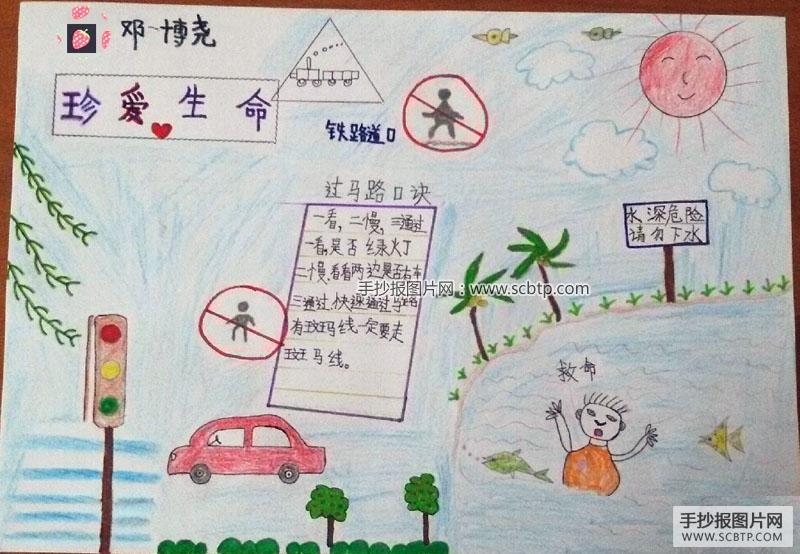 邓一博尧
珍爱生命
铁路道口
过马路口诀
一看,二慢,三通过
一看,是否绿灯
二慢,看看两边是否有车
三通过,快速通过马路
有斑马线一定要走
斑马线。
手抄报图片网:www.scbtp.com
水深危险
请勿下水
救命
手抄报图片网
WWW.SCBTP.COM